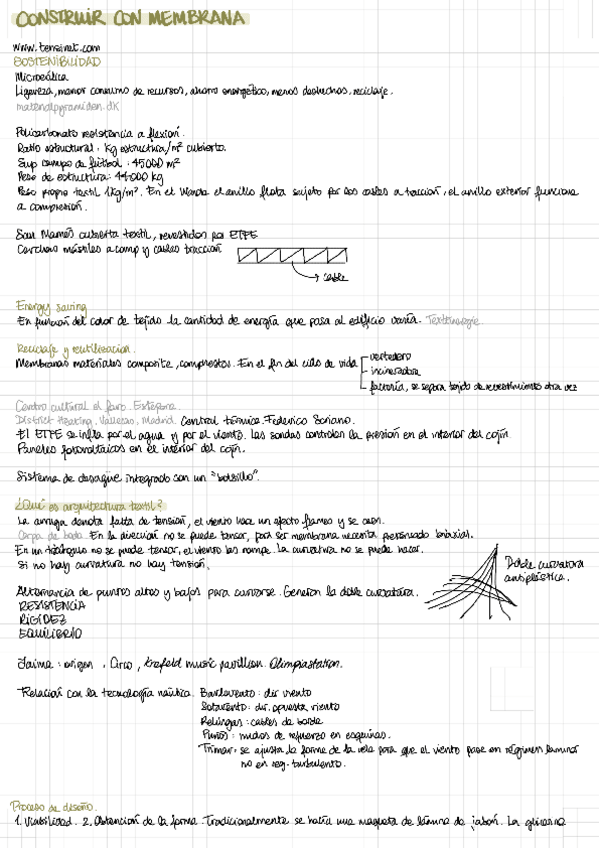 CONSTRUIR CON MEMBRANA
www.tensinet.com
SOSTENIBILIDAD
Microcálica
Ligereza, menor consumo de recursos, ahorro energético, menos deshechos, reciclaje.
materialpyramiden.dk
Policarbonato resistencia a flexión.
Ratio estructural: Kg estructura/m² cubierto.
Sup campo de fútbol: 45000 m²
Peso de estructura: 44000 kg
Peso propio textil 1kg/m². En el Wanda el anillo flota sujeto por dos cables a tracción, el anillo exterior funciona
a compresión.
San Mamés cubierta textil, revestidos por ETFE
Cerchas mástiles a comp y cables tracción
cable
Energy saving
En función del color de tejido la cantidad de energía que pasa al edificio varía.
Reciclaje y reutilización.
Membranas materiales composite, compuestos. En el fin del ciclo de vida
vertedero
incineradora
factoría, se separa tejido de revestimiento otra vez
Centro cultural el faro. Estepona.
District Heating. Vallecas, Madrid. Central térmica. Federico Soriano.
El ETFE se infla por el agua y por el viento. Las sondas controlan la presión en el interior del cojín
Paneles fotovoltaicos en el interior del cojín.
Sistema de desagüe integrado con un "bolsillo".
¿Qué es arquitectura textil?
La arruga denota falta de tensión, el viento hace un efecto flameo y se caen.
Carpa de boda. En la dirección no se puede tensar, para ser membrana necesita pretensado biaxial.
En un triángulo no se puede tensar, el viento las rompe. La curvatura no se puede hacer.
Si no hay curvatura no hay tensión.
Doble curvatura
anticlástica.
Alternancia de puntos altos y bajos para curvarse. Generan la doble curvatura.
RESISTENCIA
RIGIDEZ
EQUILIBRIO
Jaima: origen. Circo, Krefeld music pavillion. Olimpiastation.
Relación con la tecnología naútica. Barlovento: dir viento
Sotavento: dir. opuesta viento
Relingas: cables de borde
Puños: nudos de refuerzo en esquinas.
Trimar: se ajusta la forma de la vela para que el viento pase en régimen laminar
no en reg. turbulento.
Proceso de diseño.
1. Viabilidad. 2. Obtención de la forma. Tradicionalmente se hacía una maqueta de lámina de jabón. La glicerina